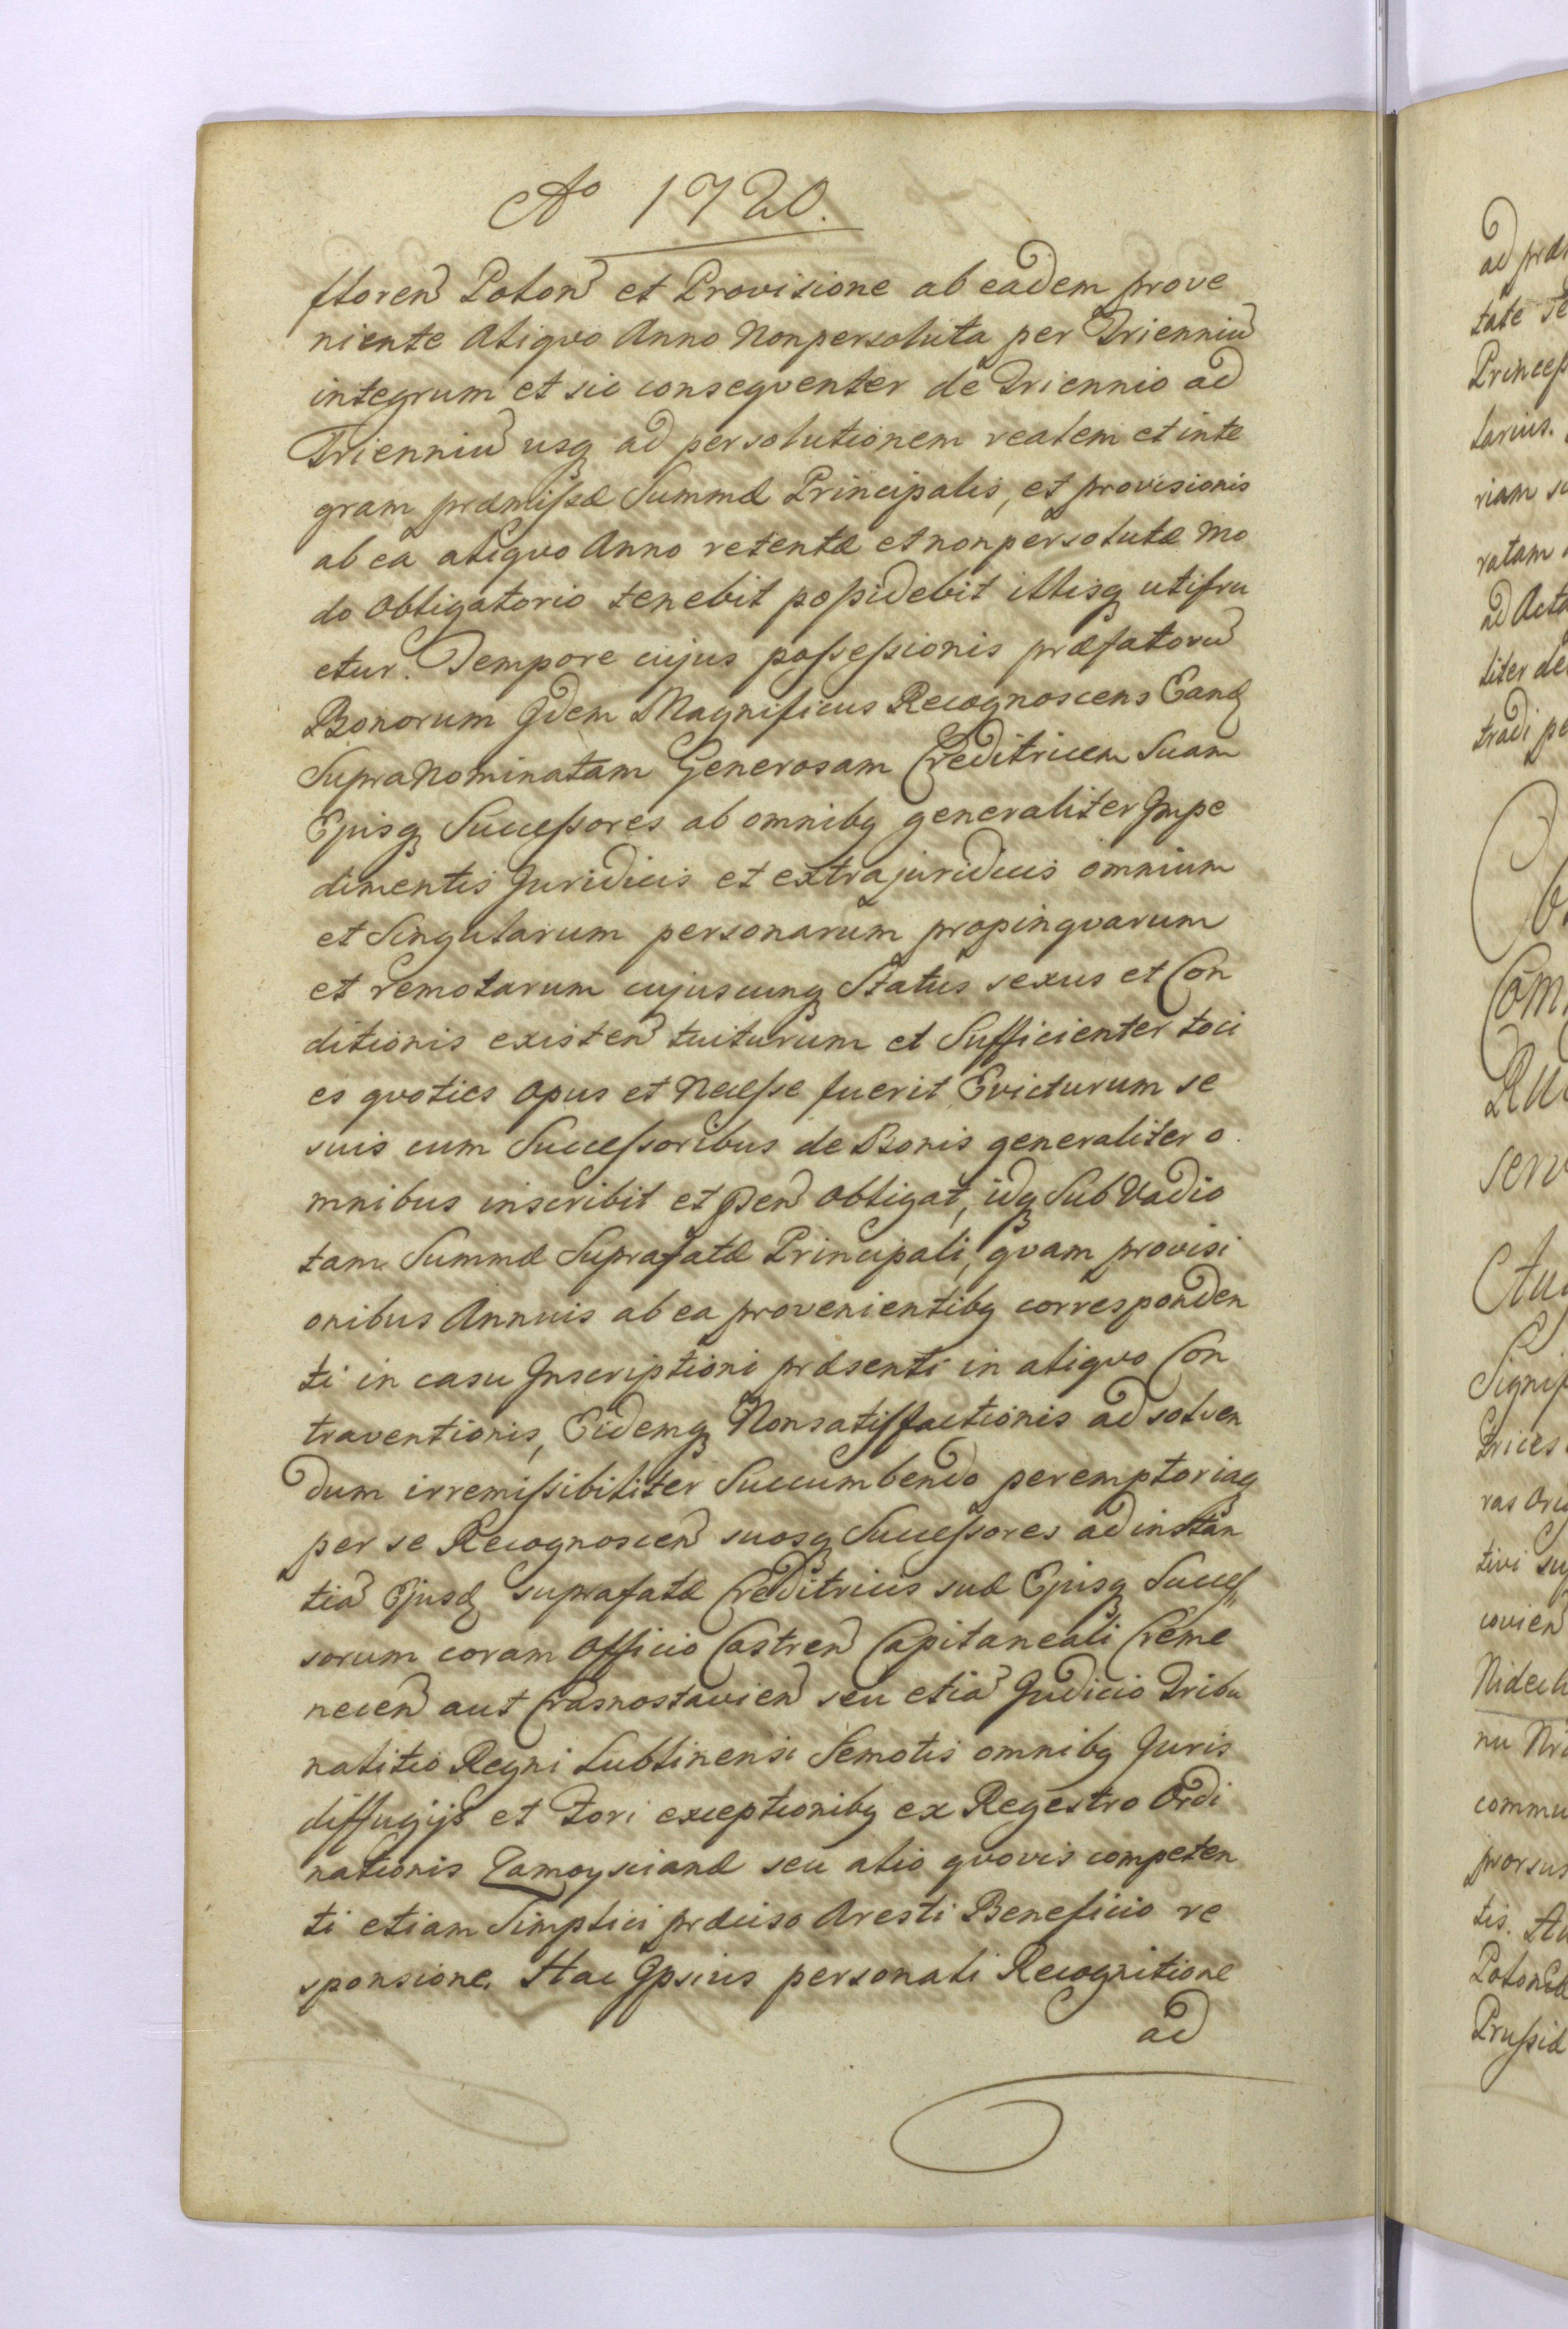 Aº 1720.
floren̄ Polon̄ et Provisione ab eadem prove
niente Aliqvo Anno Nonpersoluta per Trienniū
integrum et sic conseqventer de Triennio ad
Trienniū usq ad persolutionem realem et inte
gram præmissæ Summæ Principalis, et provisionis
ab ea aliqvo Anno retentæ et nonpersolutæ mo
do obligatorio tenebit possidebit illisq utifru
etur. Tempore cujus possessionis præfatorū
Bonorum Idem Magnificus Recognoscens Eand
SupraNominatam Generosam Creditricem Suam
Ejusq Successores ab omnibq generaliter Impe
dimentis Juridicis et extrajuridicis omnium
et Singularum personarum propinqvarum
et remotarum cujuscunq Status sexus et Con
ditionis existen̄ tuiturum et Sufficienter toci
es qvoties opus et Necesse fuerit Evicturum se
suis cum Successoribus de Bonis generaliter o
mnibus inscribit et pñ obligat, idq Sub Vadio
tam Summæ Suprafatæ Principali, qvam provisi
onibus Annuis ab ea provenientibq corresponden
ti in casu Inscriptioni præsenti in aliqvo Con
traventionis, Eidemq Nonsatisfactionis ad solven
dum irremissibiliter Succumbendo peremptoriaq
per se Recognoscen̄ suosq Successores ad instan
tiā Ejusd suprafatæ Creditricis suæ Ejusq Succes
sorum coram Officio Castren̄ Capitaneali Creme
necen̄ aut Crasnostavien̄ seu etiā Judicio Tribu
nalitio Regni Lublinensi Semotis omnibq Juris
diffugijs et Fori exceptionibq ex Regestro Ordi
nationis Zamoyscianæ seu alio qvovis competen
ti etiam Simplici præciso Aresti Beneficio re
sponsione. Hac Ipsius personali Recognitione
ad
ad præ
tate
Princeps
larius.
riam
ratam
ad Acta
liter de
tradi pe
Com
serv
Signif
trices
ras
tivi
covien
Nideck
nu
commu
prorsus
tis.
Polonæ
Prussiæ